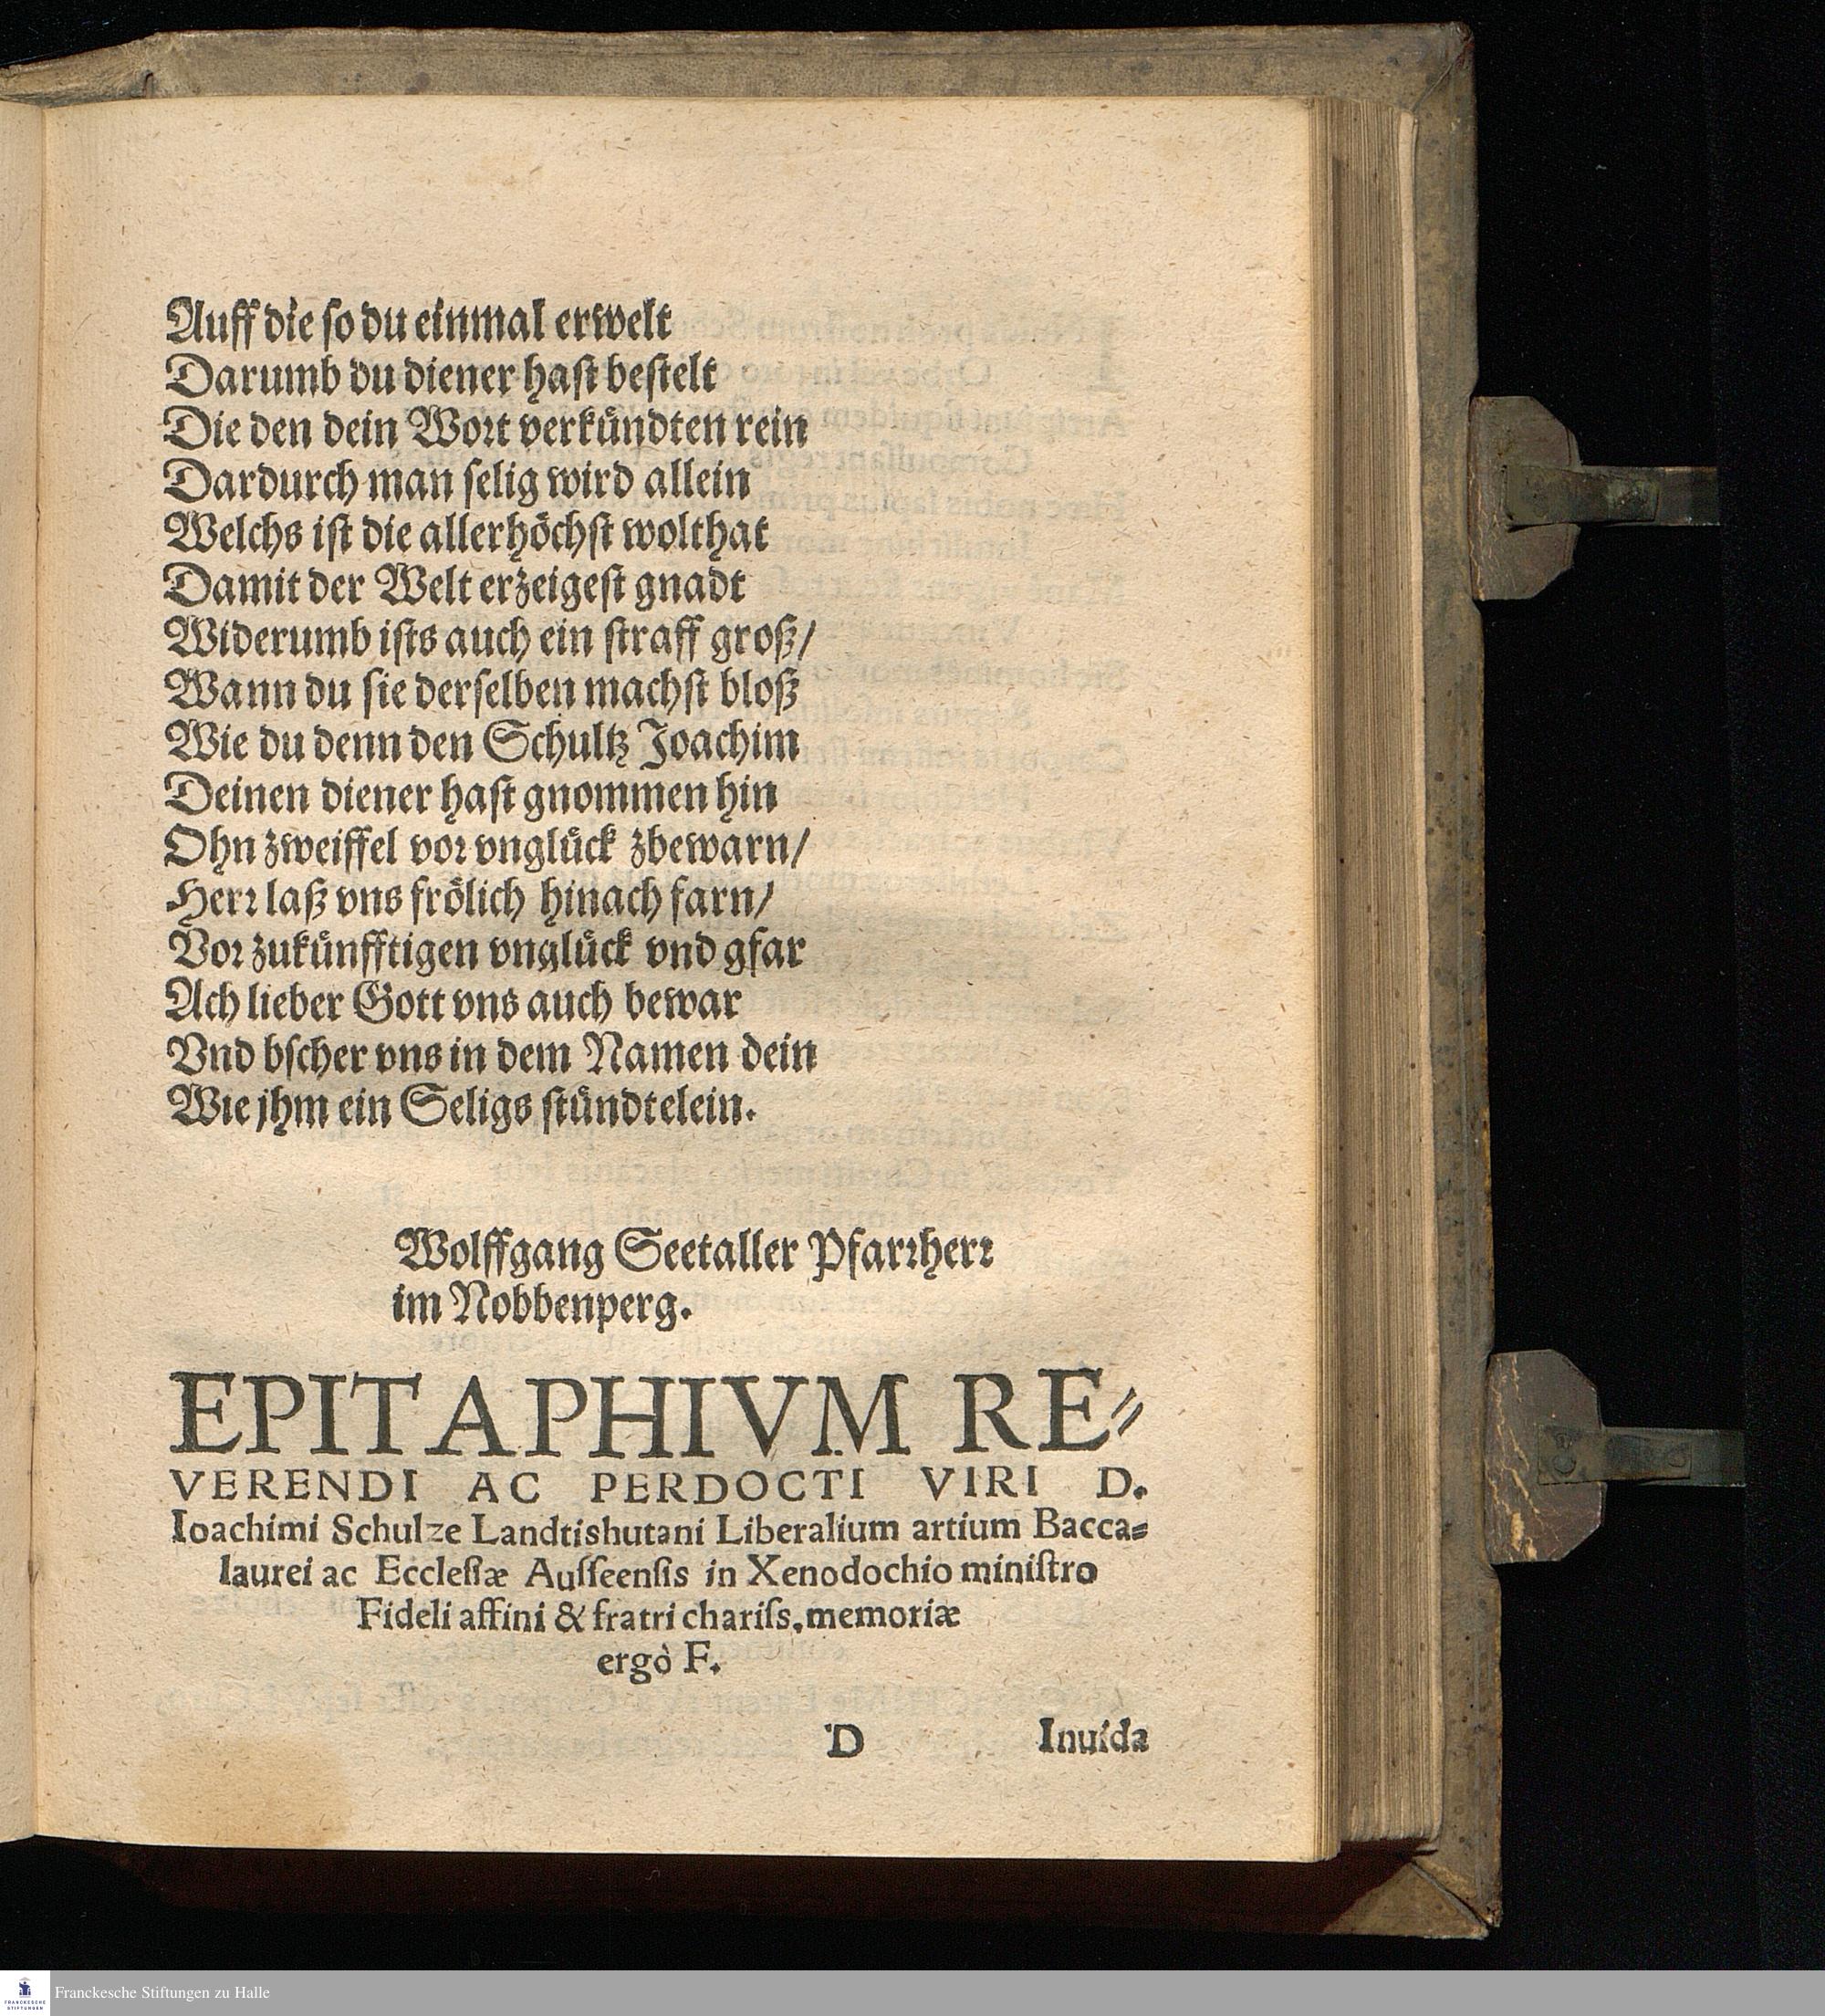 Auff die ſo du einmal erwelt
Darumb du diener haſt beſtelt
Die den dein Wort verkündten rein
Dardurch man ſelig wird allein
Welchs iſt die allerhöchſt wolthat
Damit der Welt erzeigeſt gnadt
Widerumb iſts auch ein ſtraff groß/
Wann du ſie derſelben machſt bloß
Wie du denn den Schultz Joachim
Deinen diener haſt gnommen hin
Ohn zweiffel vor vnglück zbewarn/
Herr laß vns frölich hinach farn/
Vor zukünfftigen vnglück vnd gfar
Ach lieber Gott vns auch bewar
Vnd bſcher vns in dem Namen dein
Wie jhm ein Seligs ſtündtelein.
Wolffgang Seetaller Pfarrherr
im Nobbenperg.
EPITAPHIVM RE⸗
VERENDI AC PERDOCTI VIRI D.
Ioachimi Schulze Landtishutani Liberalium artium Bacca⸗
laurei ac Eccleſiæ Auſſeenſis in Xenodochio miniſtro
Fideli affini & fratri chariſs. memoriæ
ergò F.
D Inuida
Franckesche Stiftungen zu Halle
FRANCKESCHE
STIFTUNGEN